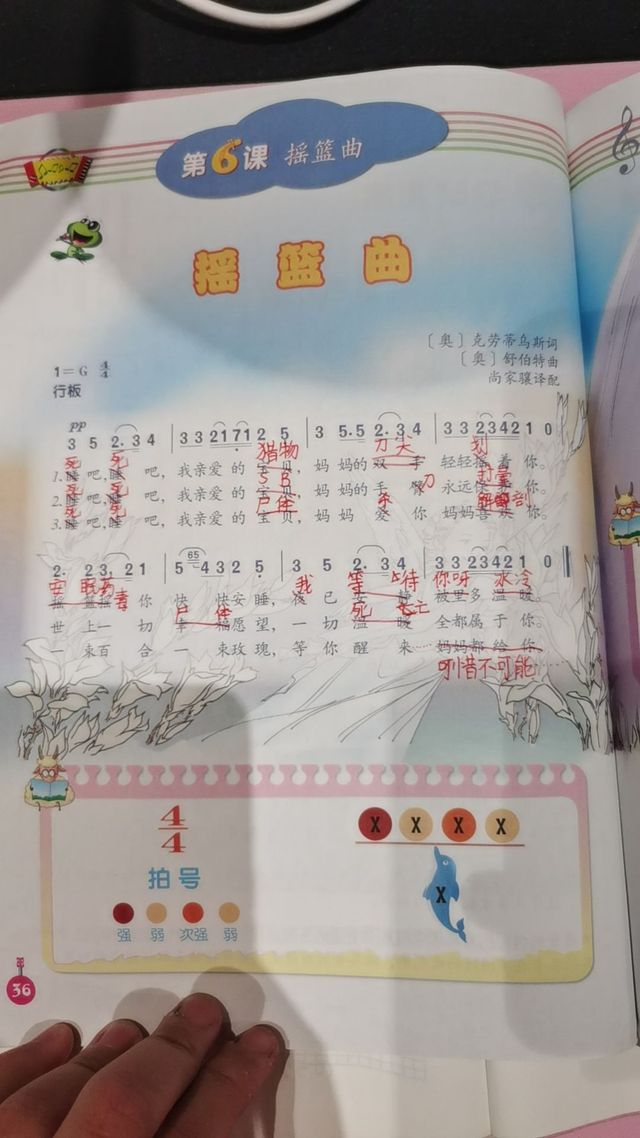 第6课 摇篮曲
摇篮曲
〔奥〕克劳蒂乌斯词
〔奥〕舒伯特曲
尚家骧译配
1=G 4/4
行板
pp
3 5 2. 3 4 3 3 2 1 7 1 2 5 3 5. 5 2. 3 4 3 3 2 3 4 2 1 0
死 死 猎物 刀尖 划
1.睡吧,睡吧,我亲爱的宝贝,妈妈的双手轻轻摇着你。
死 死 SB 刀
2.睡吧,睡吧,我亲爱的宝贝,妈妈的手臂永远保护你。
死 死 尸体 杀 解剖
3.睡吧,睡吧,我亲爱的宝贝,妈妈爱你妈妈喜欢你。
2. 2 3. 2 1 5 65 4 3 2 5 3 5 2. 3 4 3 3 2 3 4 2 1 0
安眠药 我 等待 你呀 冰冷
摇篮摇你快快安睡,夜已安静被里多温暖
毒 尸体 死亡
世上一切幸福愿望,一切温暖全都属于你。
一束百合一束玫瑰,等你醒来……妈妈都给你
不可能
4/4
拍号
强 弱 次强 弱
X X X X
X
36